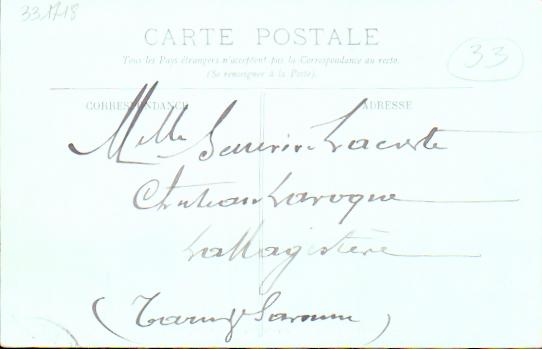 33.1718
CARTE POSTALE
33
Tous les Pays étrangers n'acceptent pas la Correspondance au recto.
(Se renseigner à la Poste).
CORRESPONDANCE
ADRESSE
Melle Séverine Lacoste
Château Laroque
LaMagistère
(Tarn & Garonne)